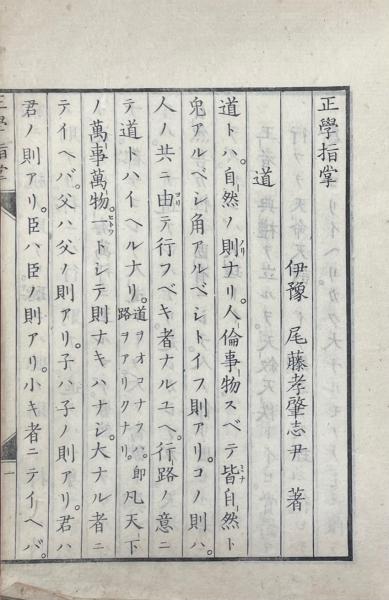 正學指掌
伊豫 尾藤孝肇志尹 著
道
道トハ。自然ノ則ノリナリ。人倫事物スベテ皆ミナ自然ト
兇アルベシ角アルベシトイフ則アリ。コノ則ハ。
人ノ共ニ由ヨリテ行フベキ者ナルユヘ。行路ノ意ニ
テ道トハイヘルナリ。道ヲオコナフハ。即路ヲアリクナリ。凡天下
ノ萬事萬物。一ヒトツトシテ則ナキハナシ。大ナル者ニ
テイヘバ。父ハ父ノ則アリ。子ハ子ノ則アリ。君ハ
君ノ則アリ。臣ハ臣ノ則アリ。小キ者ニテイヘバ。
正學指掌
一